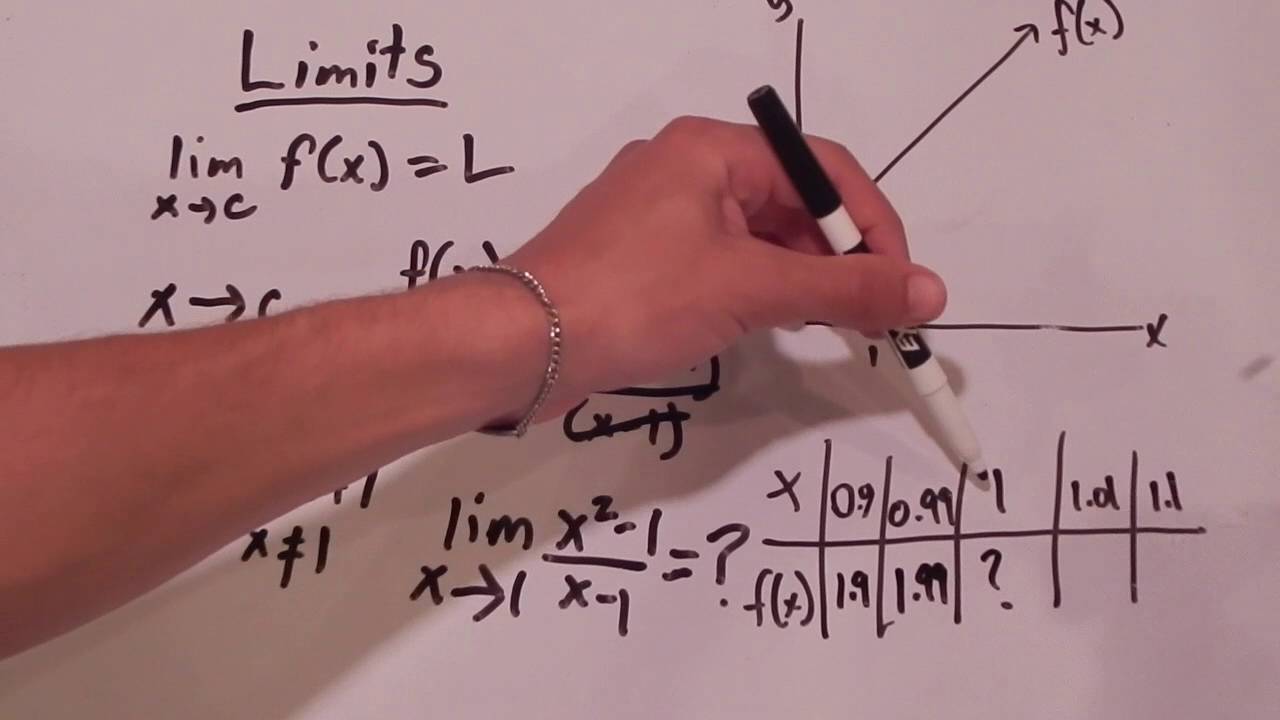 Limits
lim f(x) = L
x→c
x→c
f(x)
(x-1)
x≠1
lim x²-1 = ?
x→1 x-1
f(x)
x
1
x 0.9 0.99 1 1.01 1.1
f(x) 1.9 1.99 ?